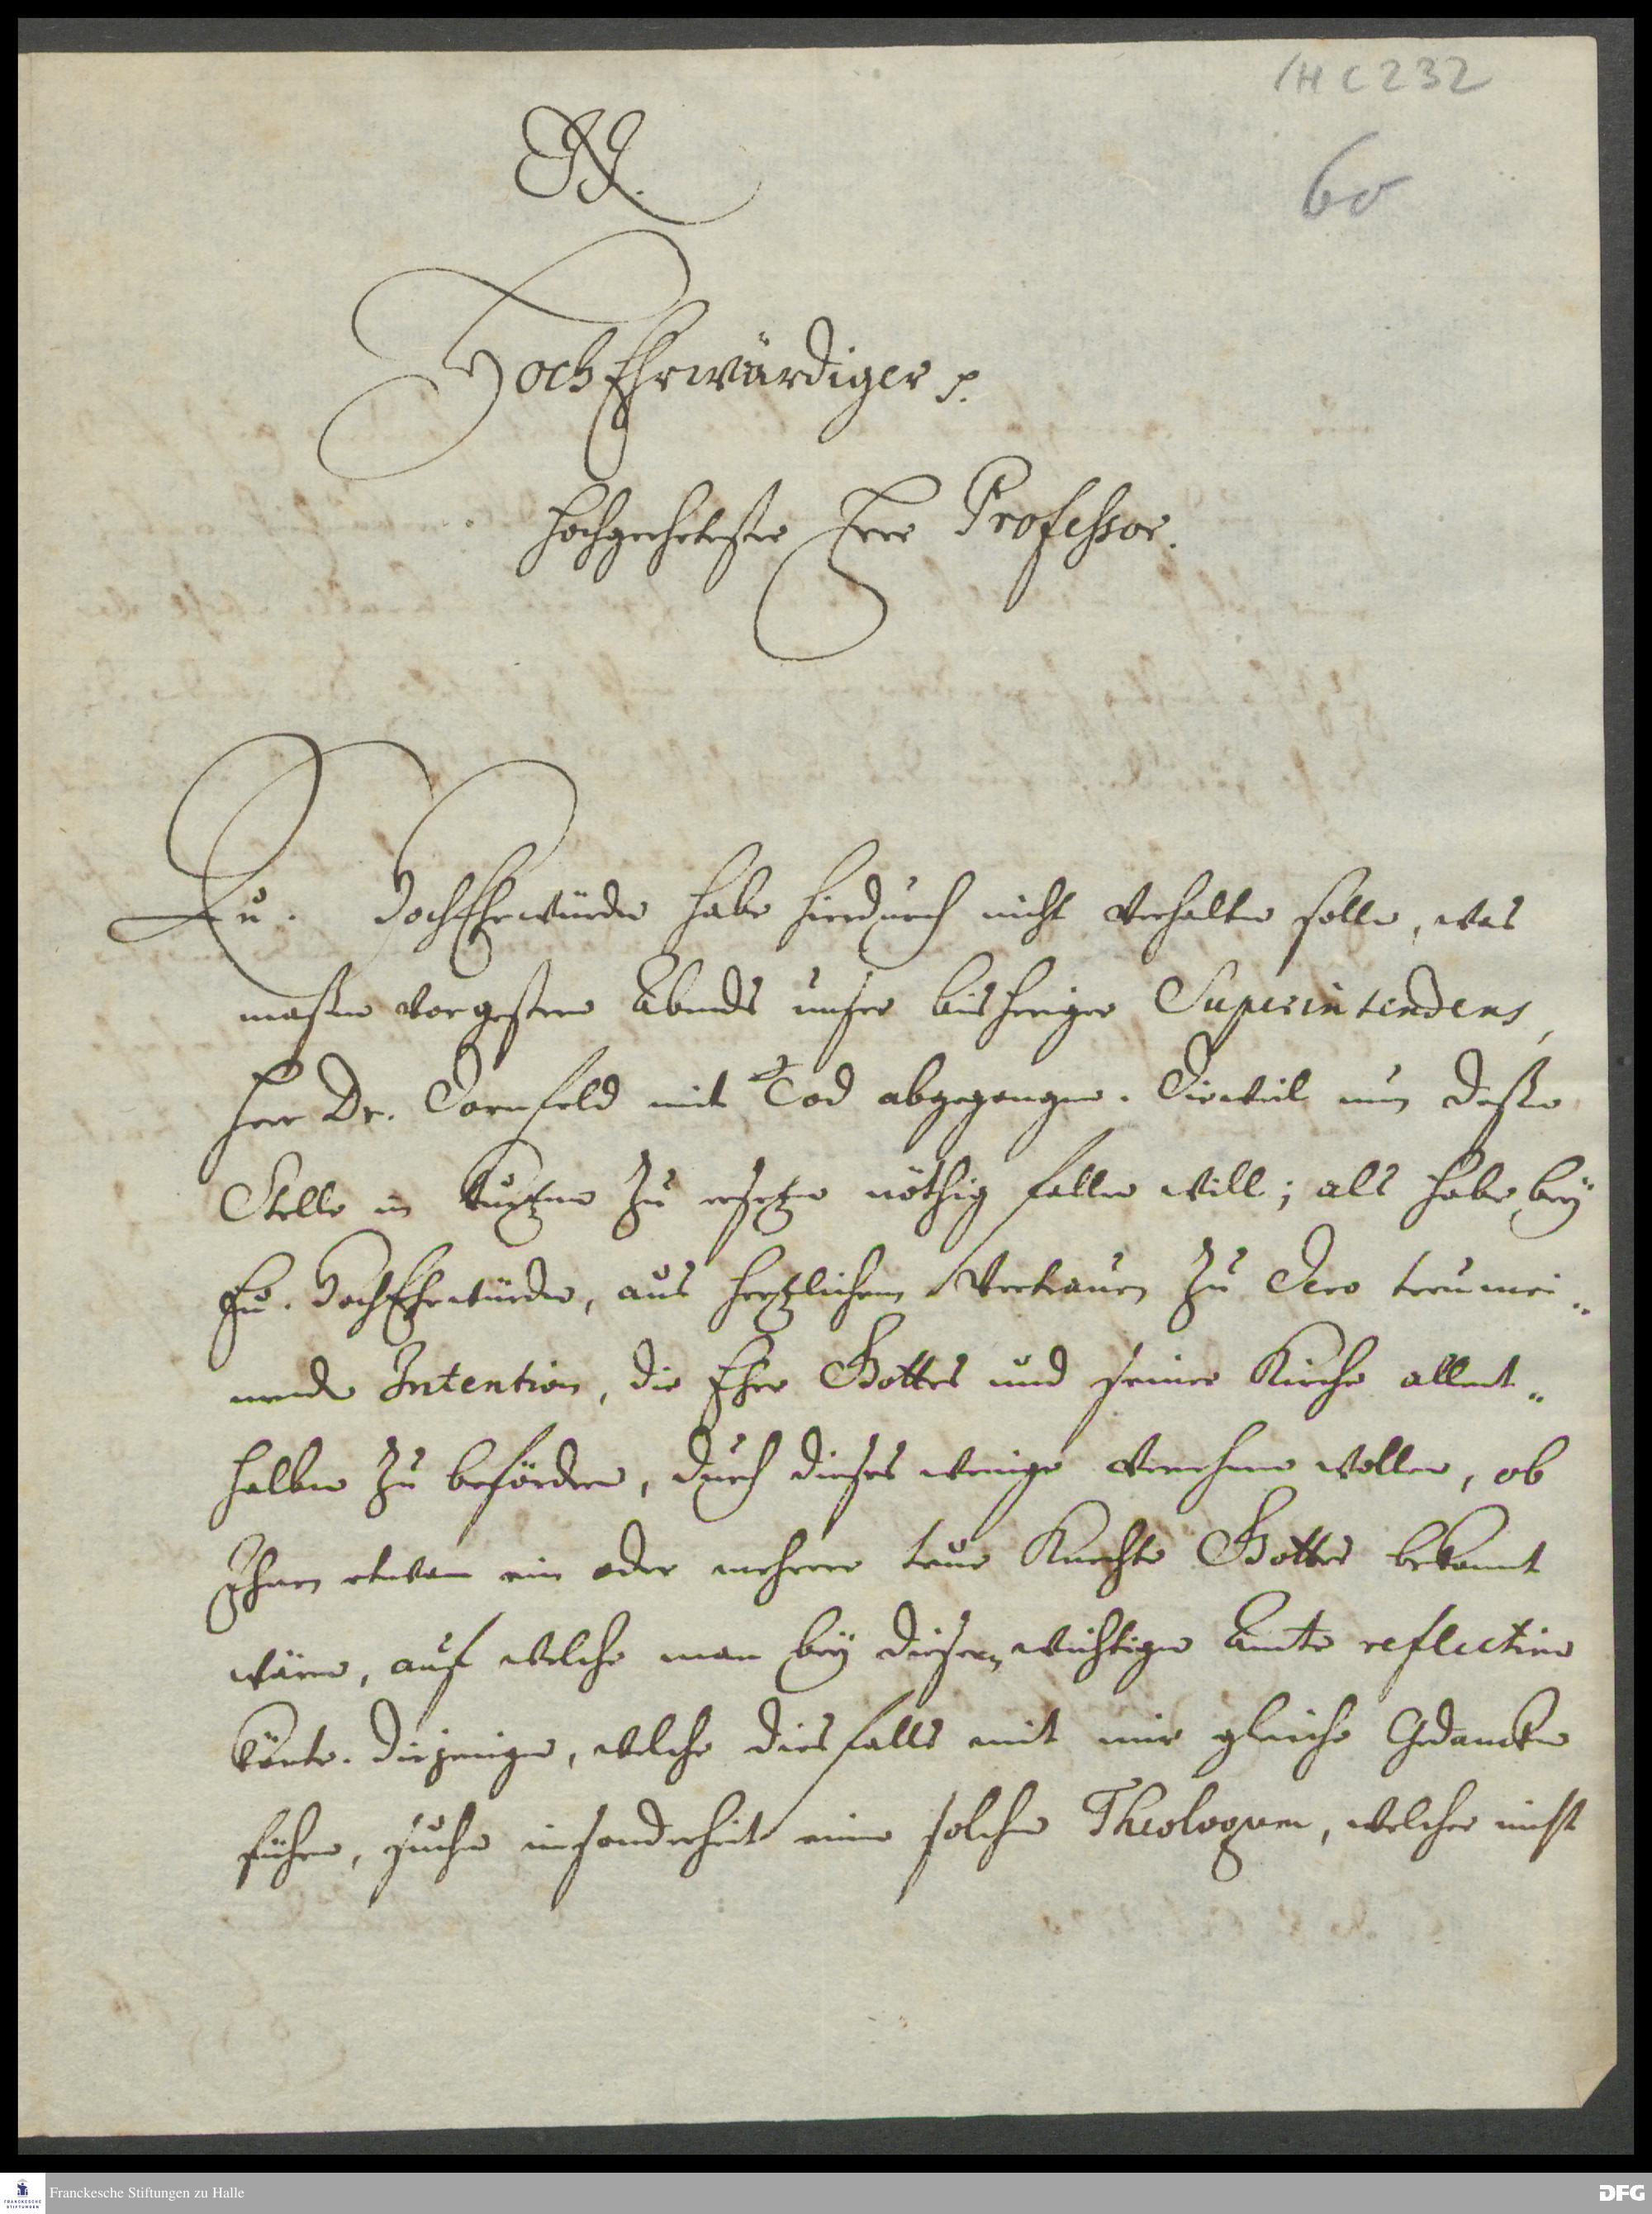 /H C 232
60
HochEhrwürdiger p.
Hochgeehrtester Herr Professor.
Eu. HochEhrwürden habe hierdurch nicht verhalten sollen, was
maßen vorgestern Abends unser bisheriger Superintendens,
Herr Dr. Dornfeld mit Tod abgegangen. Dieweil nun deßen
Stelle in kurtzem zu ersetzen nöthig fallen will; als habe bey
Eu. HochEhrwürden, aus hertzlichem Vertrauen zu Dero treumei„
nenden Intention, die Ehre Gottes und seiner Kirche allent„
halben zu befördern, durch dieses wenige vernehmen wollen, ob
Ihnen etwan ein oder mehrere treue Knechte Gottes bekannt
wären, auf welche man bey diesem wichtigen Amte reflectiren
könte. Diejenigen, welche diesfalls mit mir gleiche Gedancken
führen, suchen insonderheit einen solchen Theologum, welcher nicht
Franckesche Stiftungen zu Halle
DFG